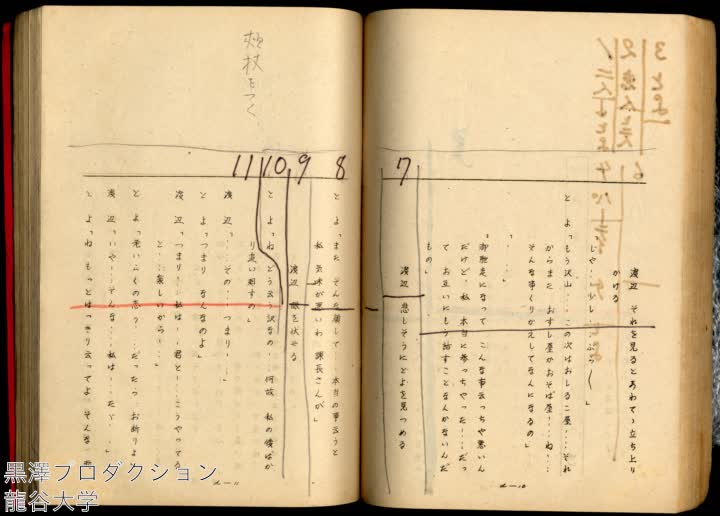 6
渡辺 それを見るとあわてゝ立ち上り
かける
「じや…少し…ぶらく」
とよ「もう沢山……この次はおしるこ屋…それ
からまた おすし屋かおそば屋…ね…
そんな事くりかえしてなんになるの」
「……」
「御馳走になって こんな事云っちや悪いん
だけど、私 本当に参っちやった……だっ
て お互いにもう話すことなんかないんだ
もの」
7
渡辺 悲しそうにとよを見つめる
8
とよ「また そんな顔して 本当の事云うと
私 気味が悪いわ 課長さんが」
9
渡辺 眼を伏せる
10
とよ「ね どう云う訳なの…何故 私の後ばか
り追い廻すの」
11
渡辺「…その…つまり…」
とよ「つまり なんなのよ」
渡辺「つまり…私は…君と…こうやってる
と……楽しいから…」
とよ「老いらくの恋? だったら お断りよ
渡辺「いや…そんな…私は…たゞ」
とよ「ね もっとはっきり云ってよ そんな
頬杖をつく
黒澤プロダクション
龍谷大学